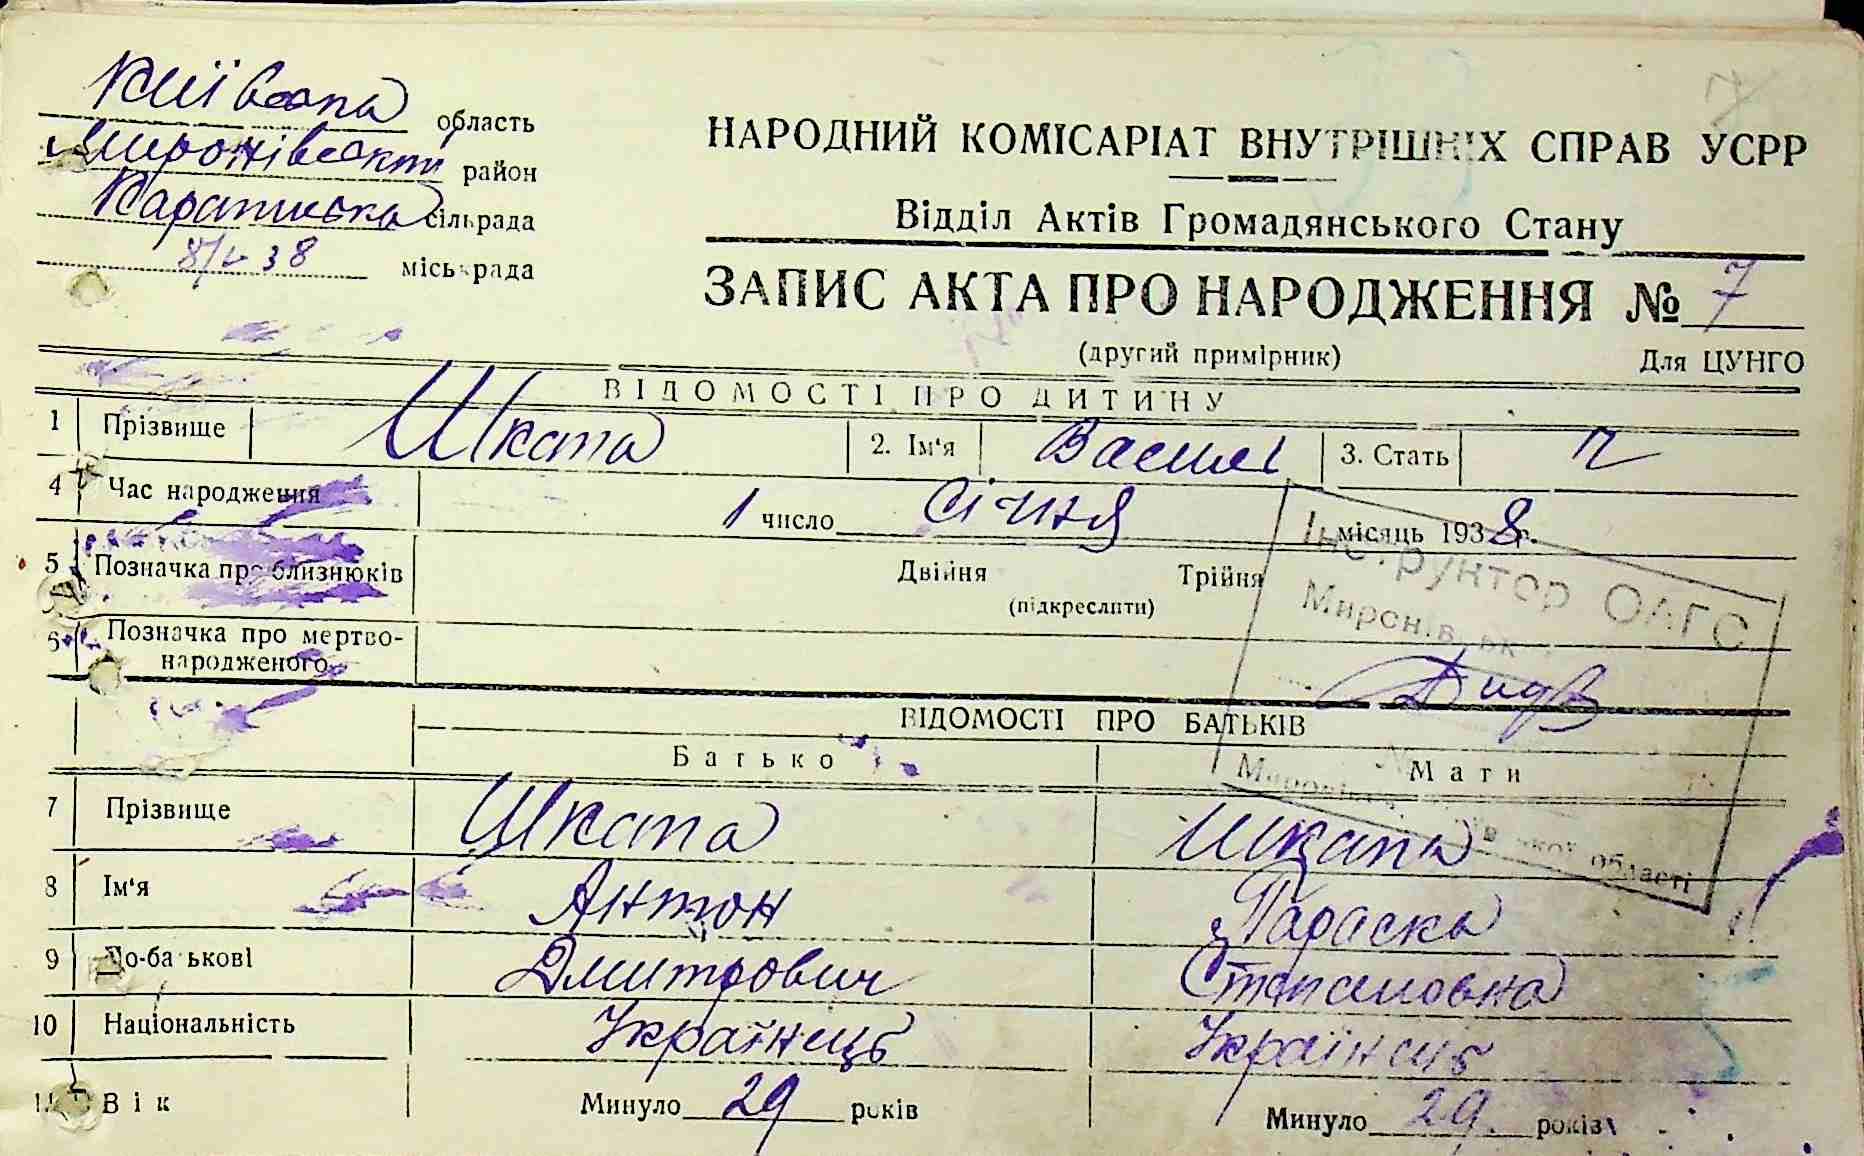 Київська область
Миронівський район
Караписька сільрада
8/І 38 міськрада
НАРОДНИЙ КОМІСАРІАТ ВНУТРІШНІХ СПРАВ УСРР
Відділ Актів Громадянського Стану
ЗАПИС АКТА ПРО НАРОДЖЕННЯ № 7
(другий примірник) Для ЦУНГО
ВІДОМОСТІ ПРО ДИТИНУ
1 Прізвище Шкапа 2. Ім'я Василь 3. Стать ч
4 Час народження 1 число січня місяць 1938 р.
5 Позначка про близнюків Двійня Трійня
(підкреслити)
6 Позначка про мертво-
народженого
Інструктор ОАГС
ВІДОМОСТІ ПРО БАТЬКІВ
Батько Мати
7 Прізвище Шкапа Шкапа
8 Ім'я Антон Параска
9 По-батькові Дмитрович Степановна
10 Національність Українець Українець
11 Вік Минуло 29 років Минуло 29 років